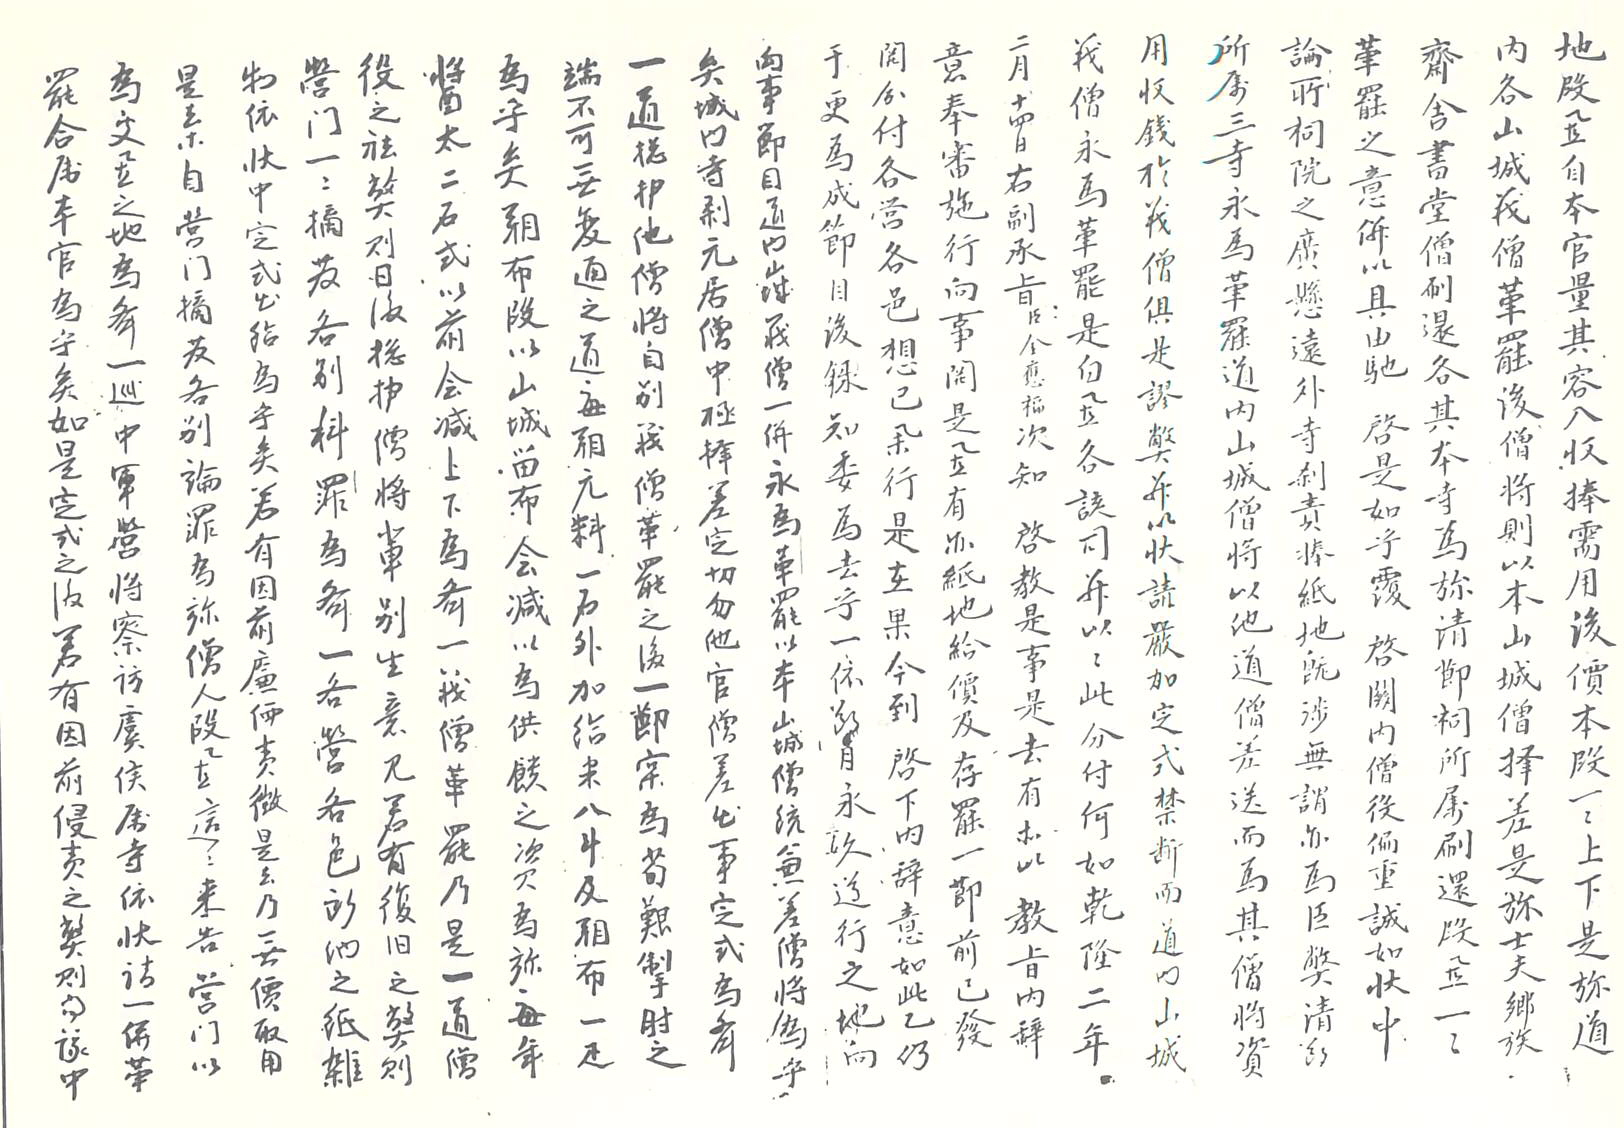 地段㐲置自本官量其容入收捧需用後價本段一〻上下是旀道
内各山城義僧革罷後僧將則以本山城僧擇差是旀士夫鄕族
齋舍書堂僧刷還各其本寺爲旀淸節祠所属刷還段置一〻
革罷之意併以具由馳 啓是如乎覆 啓關内僧役偏重誠如狀中
論所祠院之廣懸遠外寺刹責捧紙地旣涉無謂亦爲巨弊淸節
所属三寺永爲革罷道内山城僧將以他道僧差送而爲其僧將資
用收錢於義僧俱是謬弊幷以狀請嚴加定式禁斷而道内山城
義僧永爲革罷是白置各該司幷以〻此分付何如乾隆二年
二月十四日右副承旨臣金應福次知 啓敎是事是去有亦此 敎旨内辭
意奉審施行向事關是置有亦紙地給價及存罷一節前已發
關分付各營各邑想已擧行是在果今到 啓下内辭意如此乙仍
于更爲成節目後錄知委爲去乎一依節目永久遵行之地向
向事節目道内山城義僧一併永爲革罷以本山城僧統兼差僧將爲乎
矣城内寺刹元居僧中極擇差定切勿他官僧差出事定式爲齊
一道摠攝他僧將自別義僧革罷之後一節寀爲苟艱掣肘之
端不可無变通之道每朔元料一石外加給米八斗及朔布一疋
爲乎矣朔布段以山城留布会减以爲供饋之资爲旀每年
醬太二石式以前会减上下爲齊一義僧革罷乃是一道僧
役之祛弊則日後摠攝僧將輩別生意見若有復旧之弊則
營门一〻摘发各別科罪爲齊一各營各邑所他之紙雜
物依狀中定式出給爲乎矣若有因前廉価責徵是去乃無價取用
是去等自營门摘发各別論罪爲旀僧人段置這〻来告營门以
爲变置之地爲齊一巡中軍營將察訪虞侯属寺依狀請一併革
罷合属本官爲乎矣如是定式之後若有因前侵责之弊則句該中